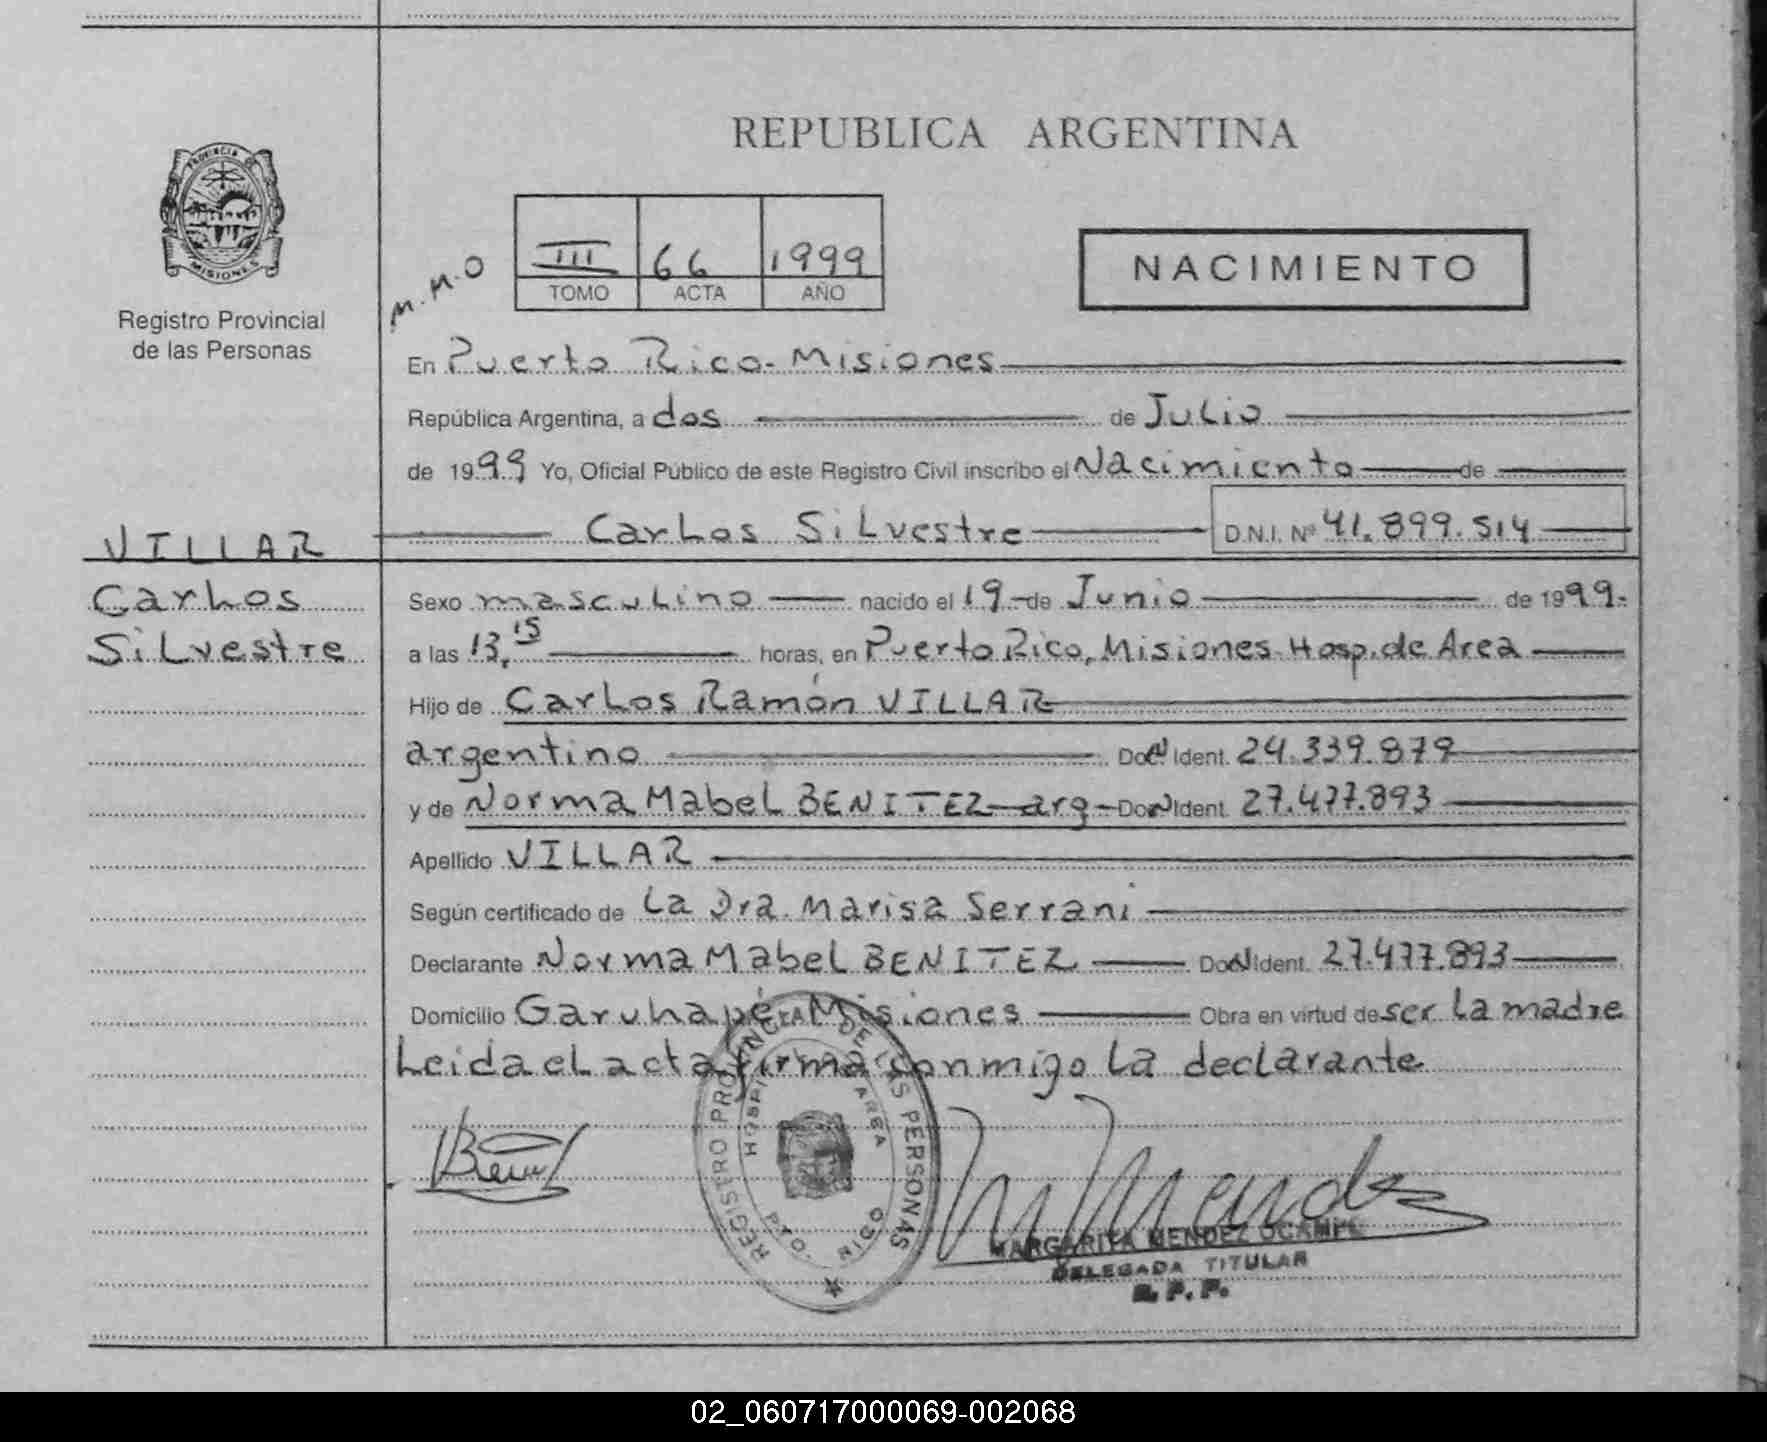 REPUBLICA ARGENTINA
PROVINCIA DE
MISIONES
Registro Provincial
de las Personas
M.M.O
III 66 1999
TOMO ACTA AÑO
NACIMIENTO
En Puerto Rico - Misiones
República Argentina, a dos de Julio
de 1999 Yo, Oficial Público de este Registro Civil inscribo el Nacimiento de
VILLAR
Carlos Silvestre D.N.I. Nº 41.899.514
Carlos
Silvestre
Sexo masculino nacido el 19 de Junio de 1999.
a las 13,15 horas, en Puerto Rico, Misiones - Hosp. de Area
Hijo de Carlos Ramón VILLAR
argentino Doc N Ident. 24.339.879
y de Norma Mabel BENITEZ - arg - Doc N Ident. 27.477.893
Apellido VILLAR
Según certificado de La Dra. Marisa Serrani
Declarante Norma Mabel BENITEZ Doc N Ident. 27.477.893
Domicilio Garuhapé - Misiones Obra en virtud de ser La madre
Leida el acta firma conmigo La declarante
REGISTRO PROVINCIAL DE LAS PERSONAS
HOSPITAL DE AREA
PTO. RICO
MARGARITA MENDEZ OCAMPO
DELEGADA TITULAR
R. P. P.
02_060717000069-002068